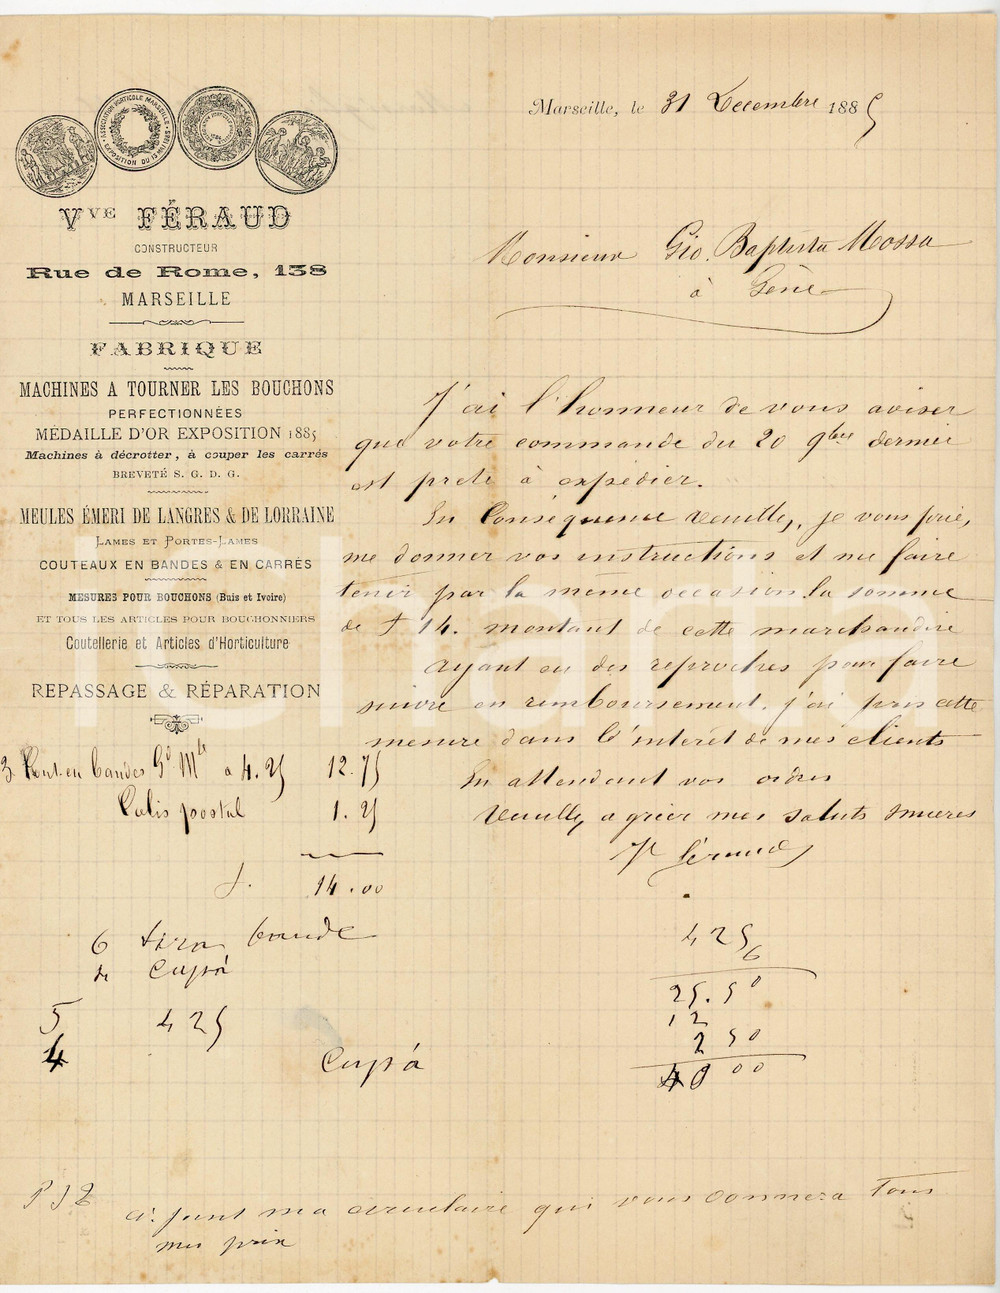 ASSOCIATION HORTICOLE MARSEILLAISE
EXPOSITION DU
Vve FÉRAUD
CONSTRUCTEUR
Rue de Rome, 138
MARSEILLE
FABRIQUE
MACHINES A TOURNER LES BOUCHONS
PERFECTIONNÉES
MÉDAILLE D'OR EXPOSITION 1885
Machines à décrotter, à couper les carrés
BREVETÉ S. G. D. G.
MEULES ÉMERI DE LANGRES & DE LORRAINE
LAMES ET PORTES-LAMES
COUTEAUX EN BANDES & EN CARRÉS
MESURES POUR BOUCHONS (Buis et Ivoire)
ET TOUS LES ARTICLES POUR BOUCHONNIERS
Coutellerie et Articles d'Horticulture
REPASSAGE & RÉPARATION
Marseille, le 31 Decembre 1885
Monsieur Gio. Baptista Mossa
à Gène
J'ai l'honneur de vous aviser
que votre commande du 20 9bre dernier
est prete à expédier.
En Conséquence veuillez, je vous prie,
me donner vos instructions et me faire
tenir par la même occasion la somme
de f 14. montant de cette marchandise
Ayant eu des reproches pour faire
suivre en remboursement, j'ai pris cette
mesure dans l'intérêt de mes clients
En attendant vos ordres
Veuillez agréer mes saluts sincères
Ve Féraud
3 Cout en bandes Gd Mle a 4.25 12.75
Colis postal 1.25
f. 14.00
6 bande
4 Cuspá
5 425
4
Cuspá
425
6
25.50
12
2 50
40 00
Ci joint ma circulaire qui vous donnera tous
mes prix
icharta